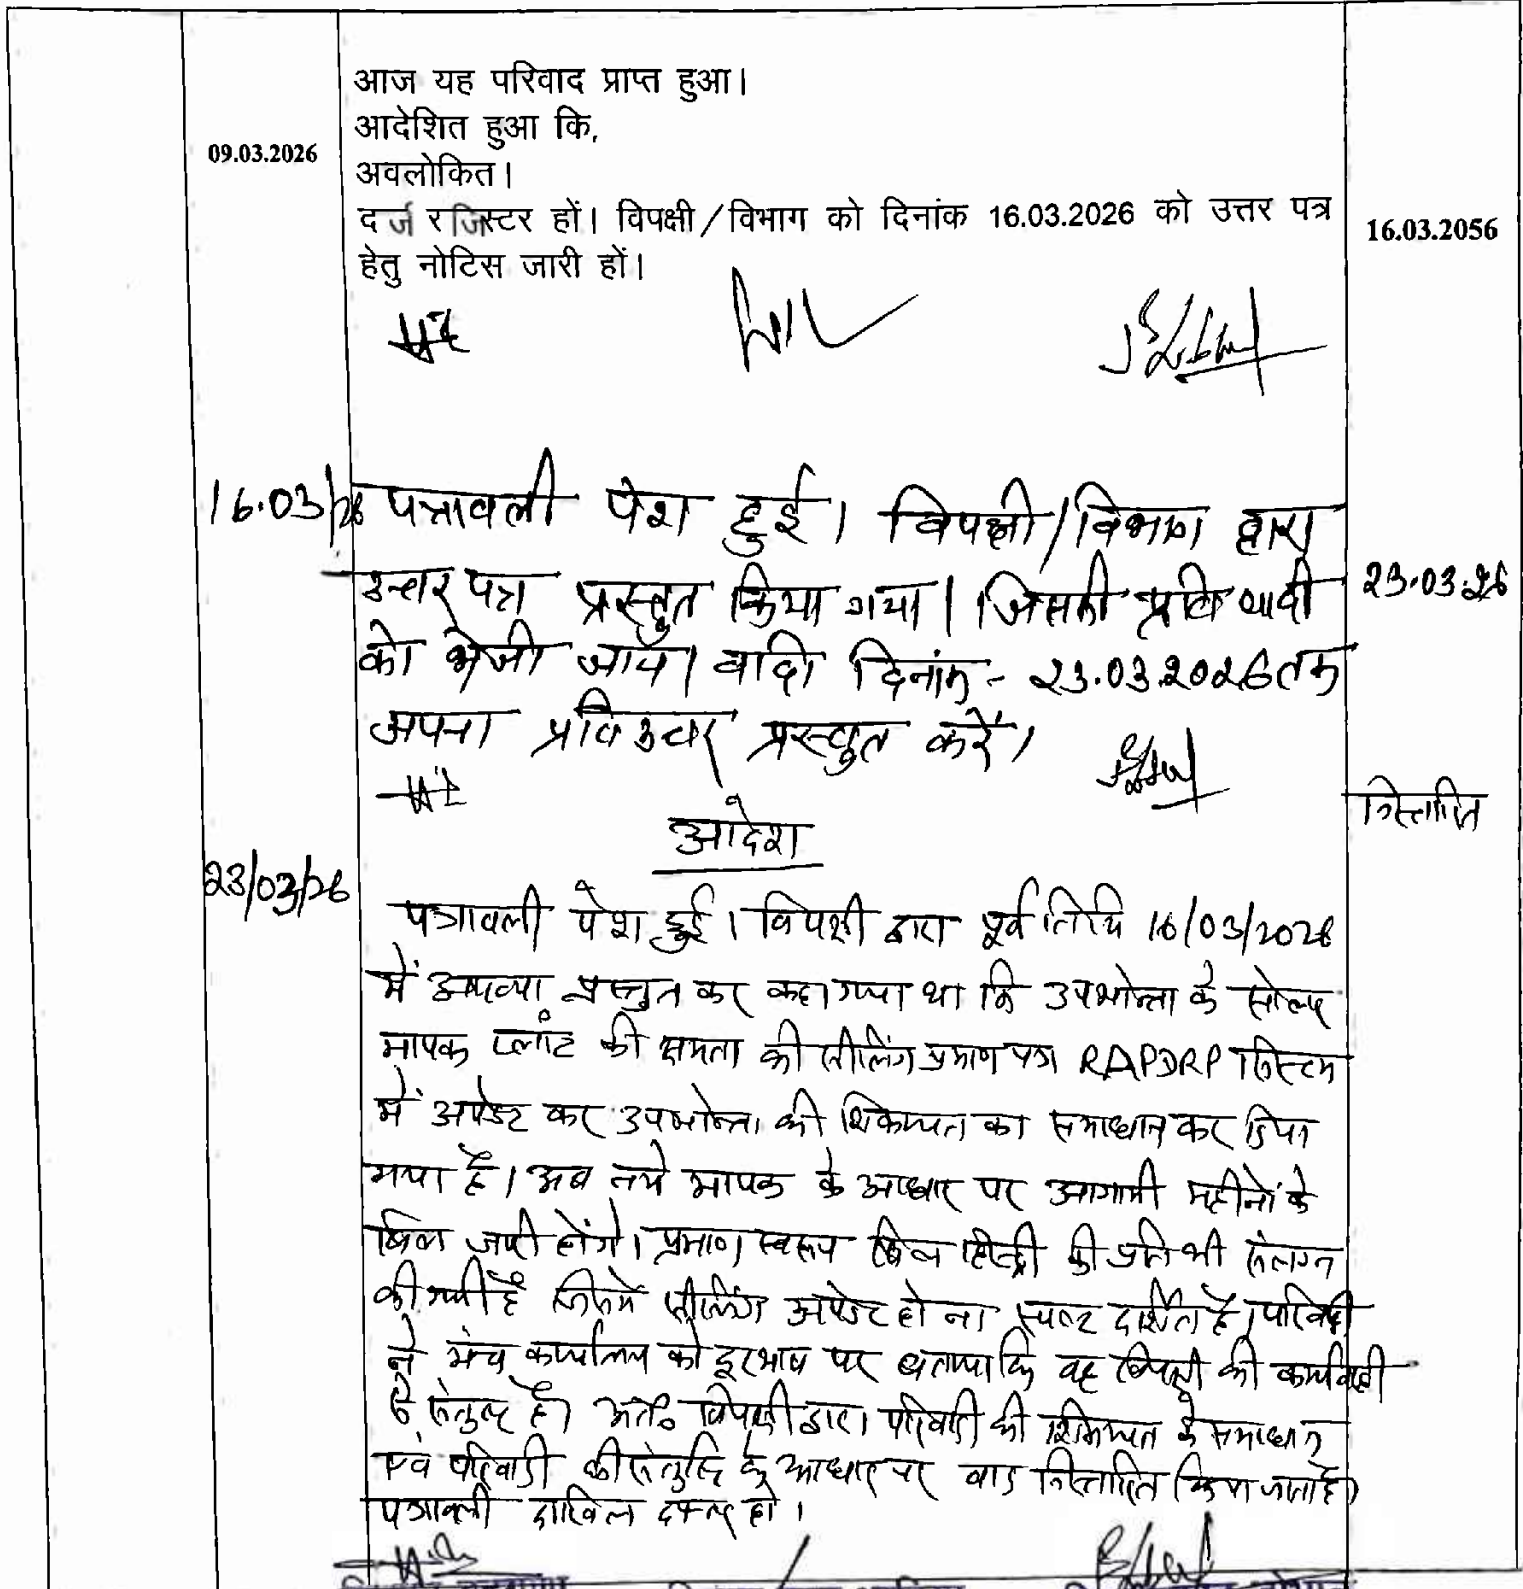 आज यह परिवाद प्राप्त हुआ।
आदेशित हुआ कि,
09.03.2026
अवलोकित।
दर्ज रजिस्टर हों। विपक्षी/विभाग को दिनांक 16.03.2026 को उत्तर पत्र
16.03.2056
हेतु नोटिस जारी हों।
16.03/26 पत्रावली पेश हुई। विपक्षी/विभाग द्वारा
उत्तर पत्र प्रस्तुत किया गया। जिसकी प्रति वादी
23.03.26
को भेजी जाय। वादी दिनांक - 23.03.2026 तक
अपना प्रतिउत्तर प्रस्तुत करें।
निस्तारित
आदेश
23/03/26
पत्रावली पेश हुई। विपक्षी द्वारा पूर्व तिथि 16/03/2026
में प्रस्तुत कर कहा गया था कि उपभोक्ता के सोलर
मापक प्लांट की क्षमता की सीलिंग प्रमाण पत्र RAPDRP सिस्टम
में अपडेट कर उपभोक्ता की शिकायत का समाधान कर दिया
गया है। अब नये मापक के आधार पर आगामी महीनों के
बिल जारी होंगे। प्रमाण स्वरूप बिल हिस्ट्री की प्रति भी संलग्न
की गयी है जिसमें सीलिंग अपडेट होना स्पष्ट दर्शित है। परिवादी
ने मंच कार्यालय को दूरभाष पर बताया कि वह विपक्षी की कार्यवाही
से संतुष्ट है। अतः विपक्षी द्वारा परिवादी की शिकायत के समाधान
एवं परिवादी की संतुष्टि के आधार पर वाद निस्तारित किया जाता है।
पत्रावली दाखिल दफ्तर हो।